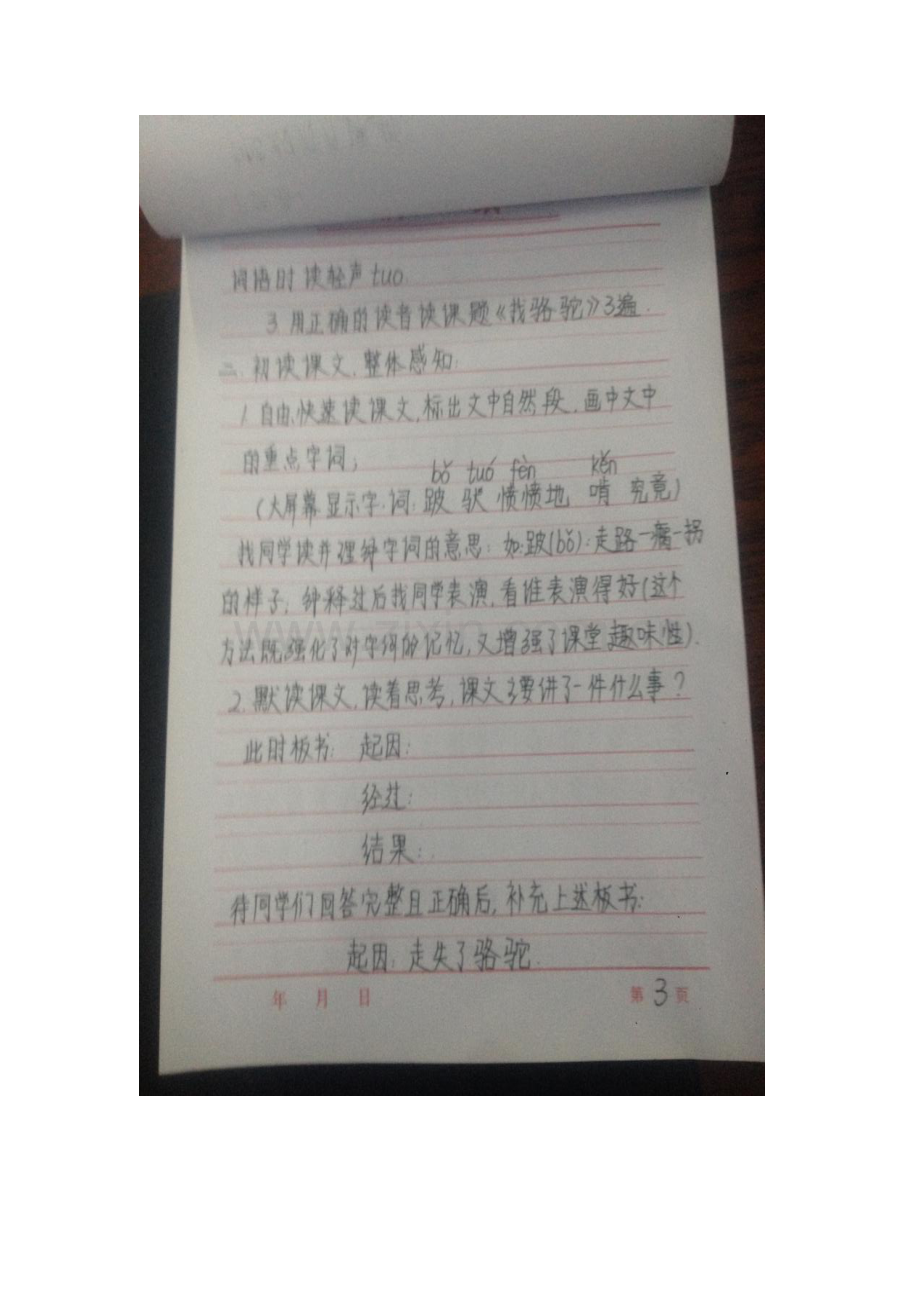 词语时读轻声tuo.
3 用正确的读音读课题《找骆驼》3遍.
二. 初读课文,整体感知:
1. 自由、快速读课文,标出文中自然段,画中文中
的重点字词;
bǒ tuó fèn kěn
(大屏幕显示字、词: 跛 驮 愤愤地 啃 究竟)
找同学读并理解字词的意思: 如:跛(bǒ):走路一瘸一拐
的样子, 解释过后找同学表演,看谁表演得好(这个
方法既强化了对字词的记忆,又增强了课堂趣味性).
2. 默读课文,读着思考,课文主要讲了一件什么事?
此时板书: 起因:
经过:
结果:
待同学们回答完整且正确后,补充上述板书:
起因: 走失了骆驼.
年 月 日 第 3 页